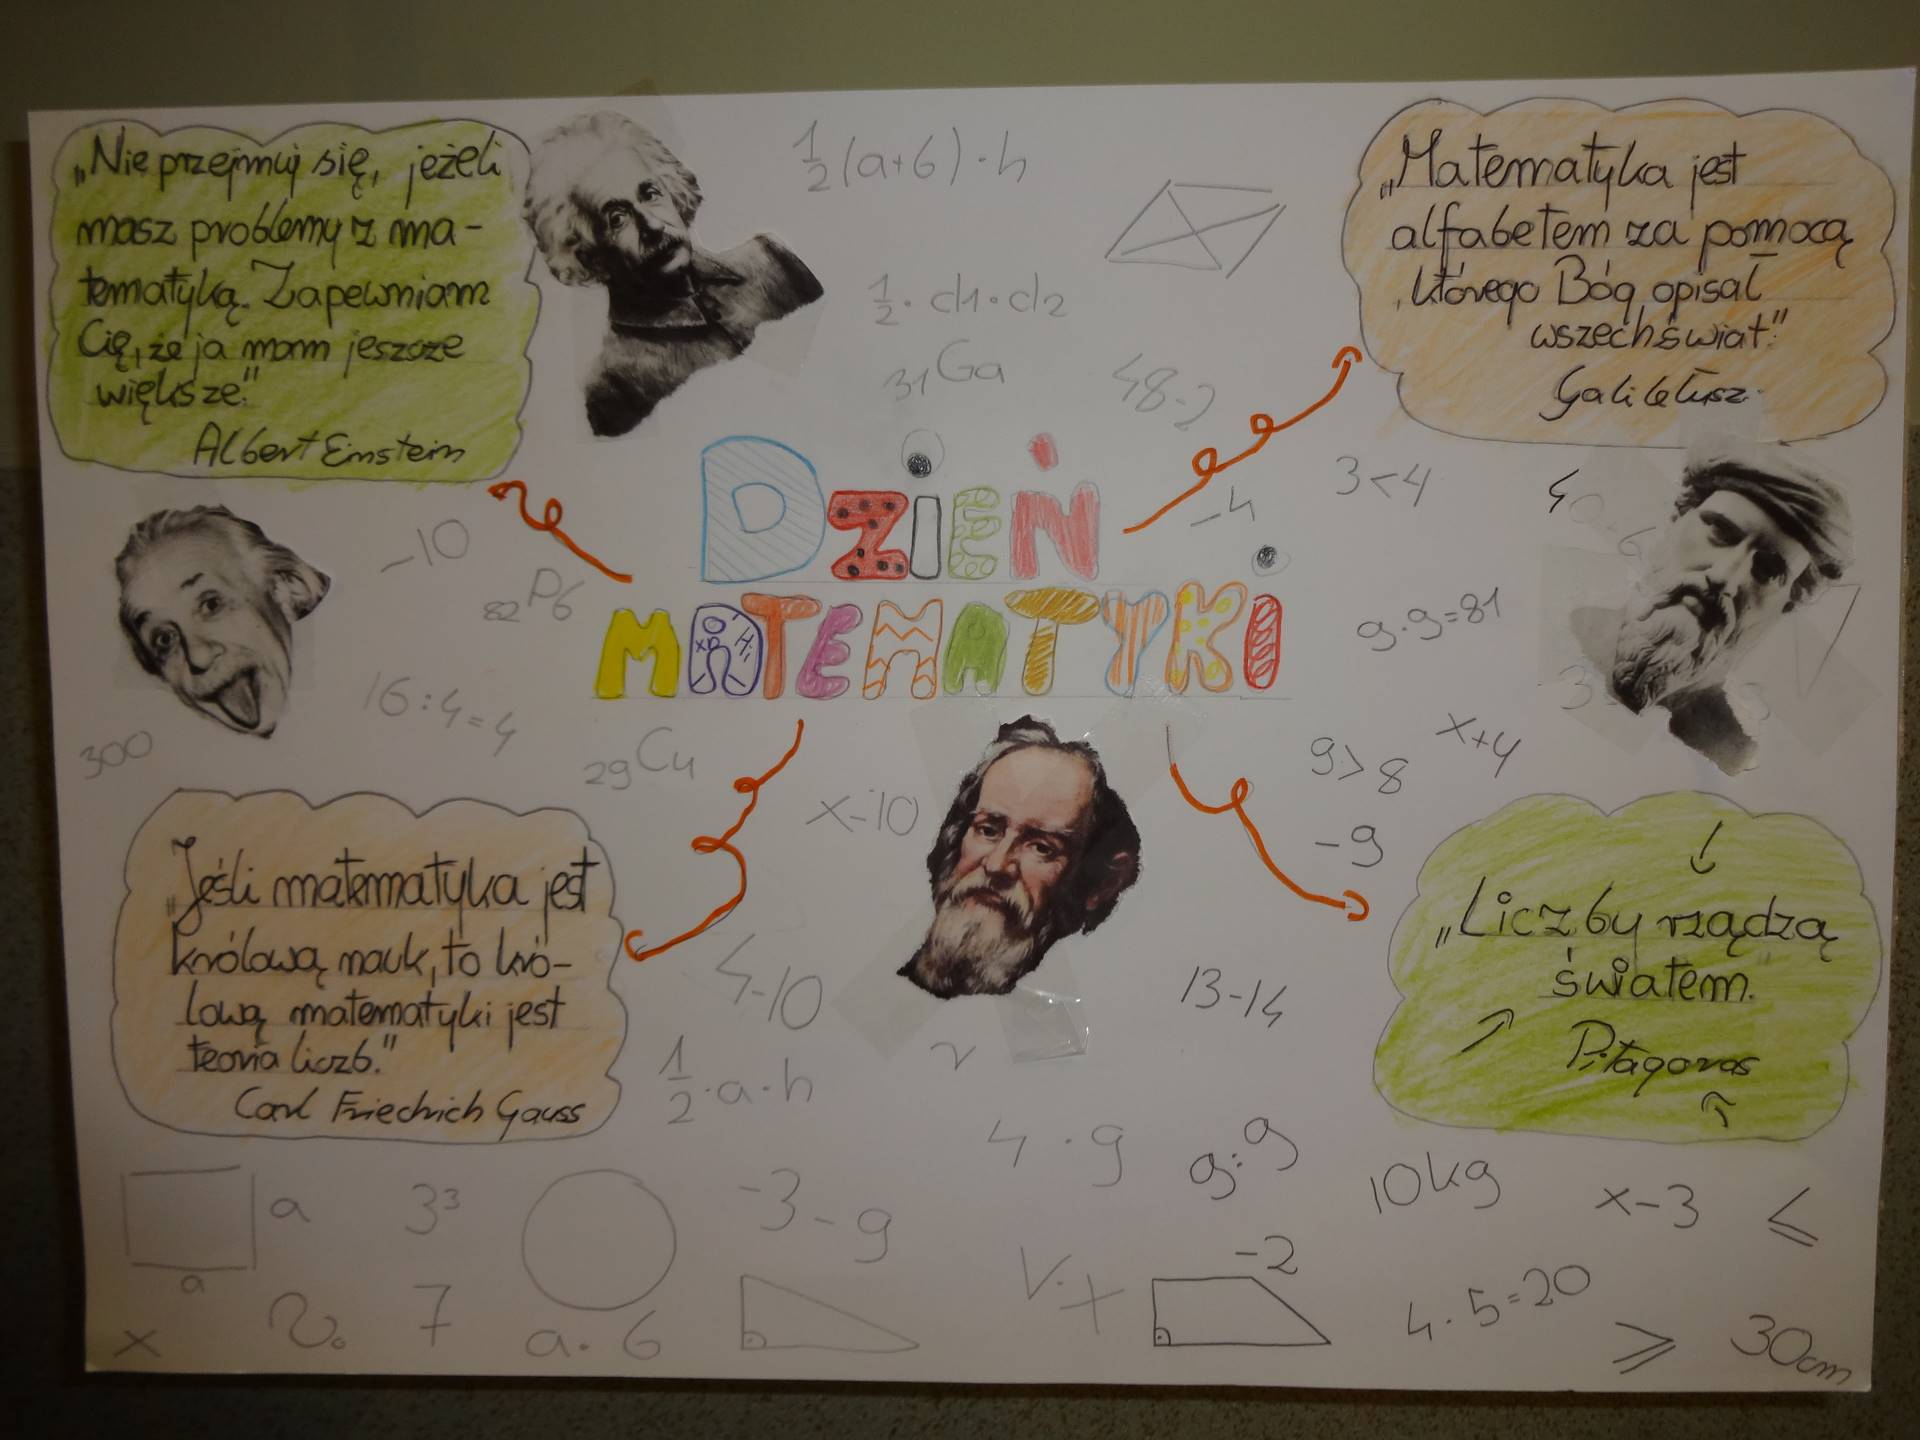 „Nie przejmuj się, jeżeli
masz problemy z ma-
tematyką. Zapewniam
Cię, że ja mam jeszcze
większe."
Albert Einstein
½(a+b)·h
½·d1·d2
31Ga
48-2
„Matematyka jest
alfabetem za pomocą
którego Bóg opisał
wszechświat."
Galileusz
DZIEŃ
MATEMATYKI
-10
82Pb
16:4=4
300
29Cu
-4
3<4
9·9=81
x+4
9>8
-9
x-10
„Jeśli matematyka jest
królową nauk, to kró-
lową matematyki jest
teoria liczb."
Carl Friedrich Gauss
4-10
½·a·h
13-14
„Liczby rządzą
światem."
Pitagoras
4·9
9:9
10kg
x-3
≤
a
a
3³
-3-9
x
7
a·b
V·x
-2
4·5=20
≥
30cm